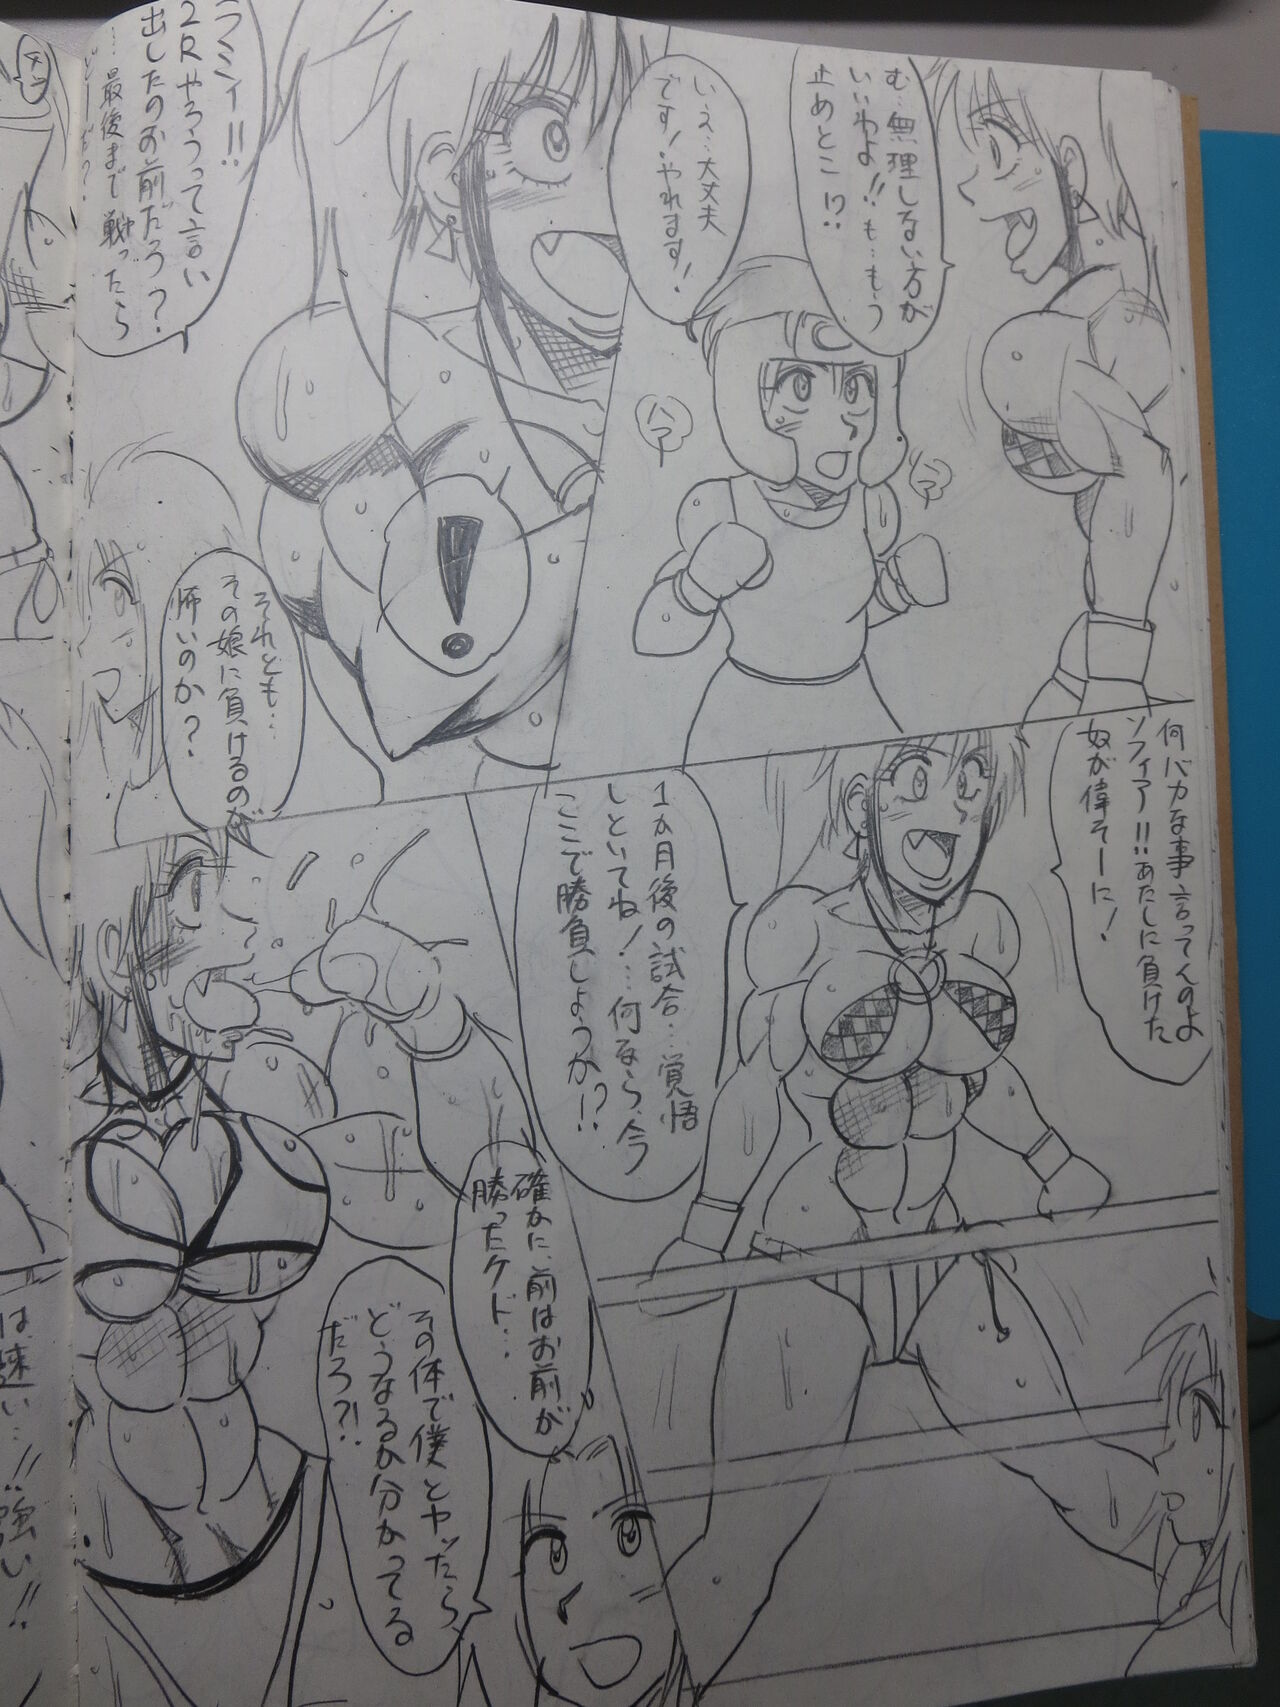 む…無理しない方が
いいわよ!!も…もう
止めとこ!?
いえ…大丈夫
です!やれます!
ハァ
ハァ
ラミィ!!
2Rやろうって言い
出したのお前だろ?
…最後まで戦ったら
どーだ?
それとも…
その娘に負けるのが
怖いのか?
何バカな事言ってんのよ
ソフィア!!あたしに負けた
奴が偉そーに!
1カ月後の試合…覚悟
しといてね!…何なら、今
ここで勝負しようか!?
確かに、前はお前が
勝ったケド…
その体で僕とヤッたら、
どうなるか分かってる
だろ?!
は、速い…!!強い!!